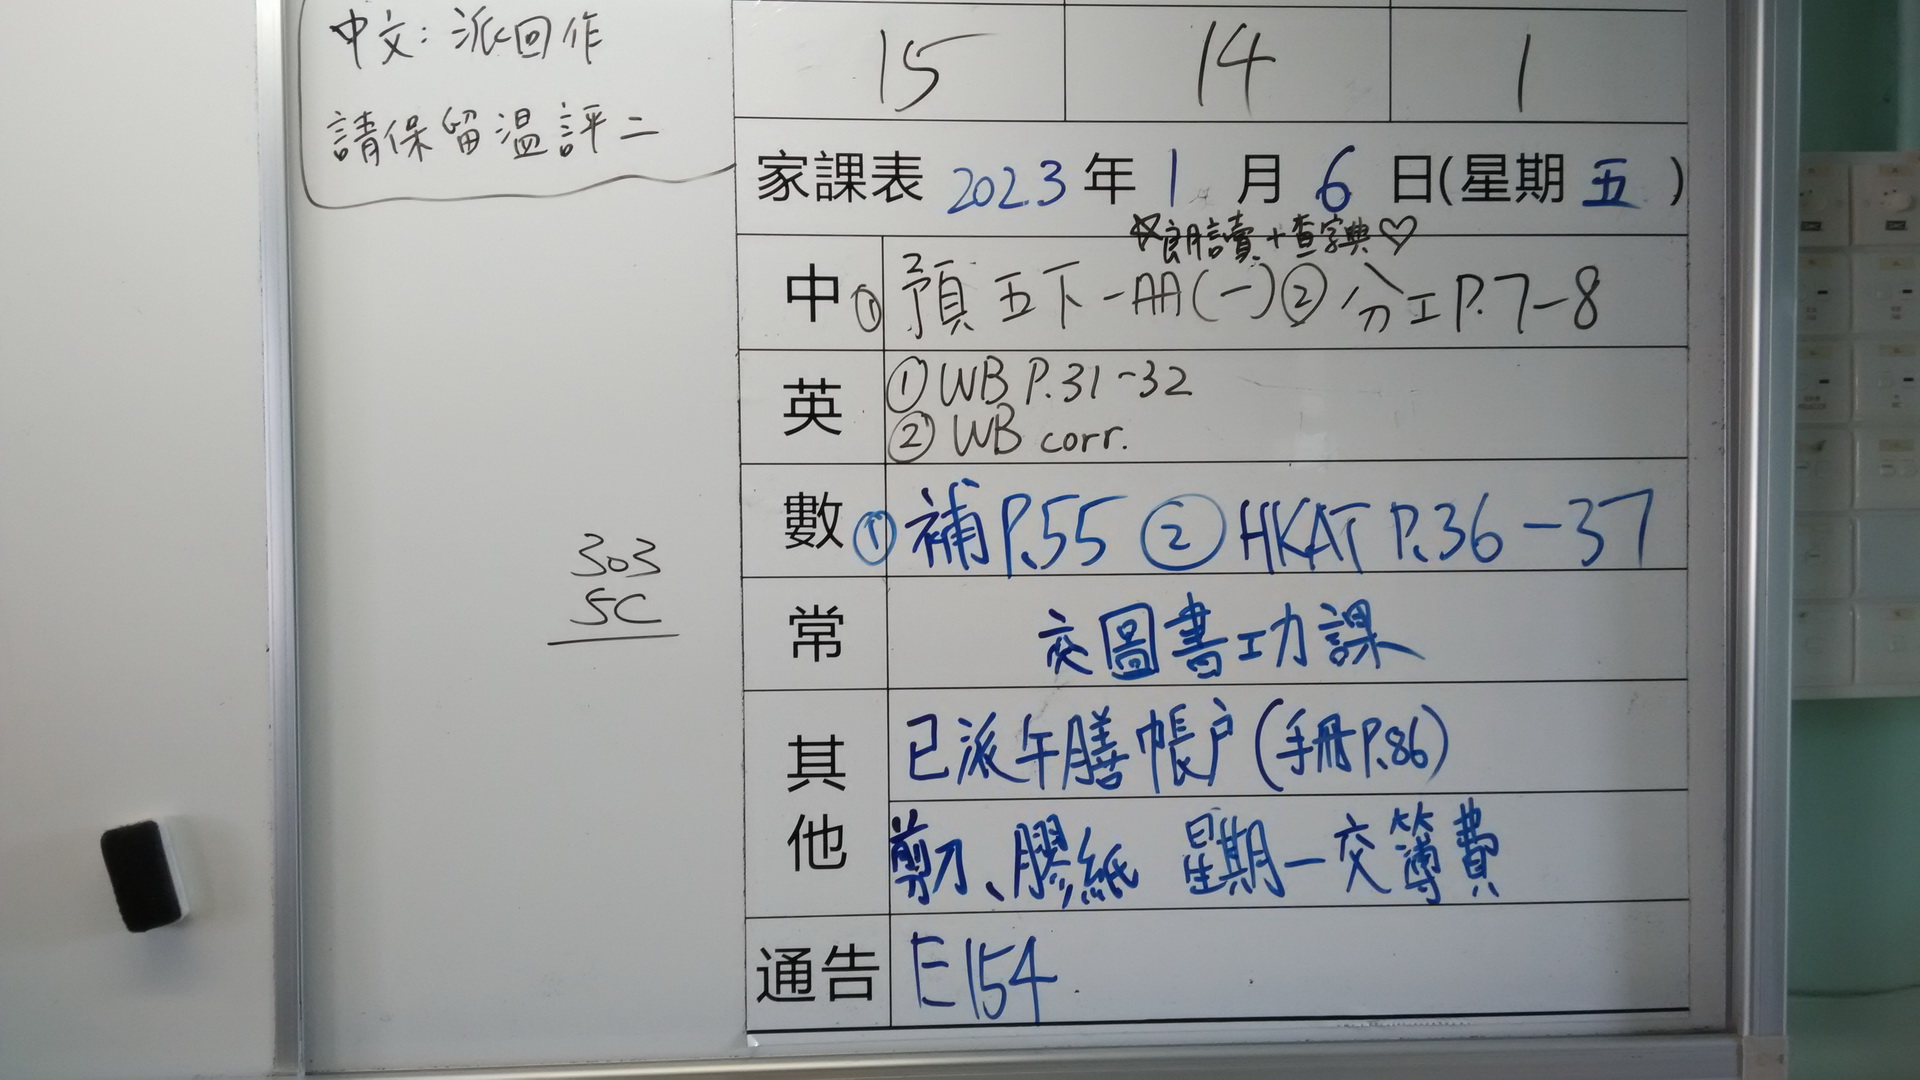 中文：派回作
請保留溫評二
15 14 1
家課表 2023年1月6日(星期五)
☆朗讀+查字典♡
中 ①預五下-AA(一)②分工P.7-8
英 ①WB P.31-32
②WB corr.
數 ①補P.55 ②HKAT P.36-37
303
5C
常 交圖書工功課
其他 已派午膳帳户(手冊P.86)
剪刀、膠紙 星期一交簿費
通告 E154